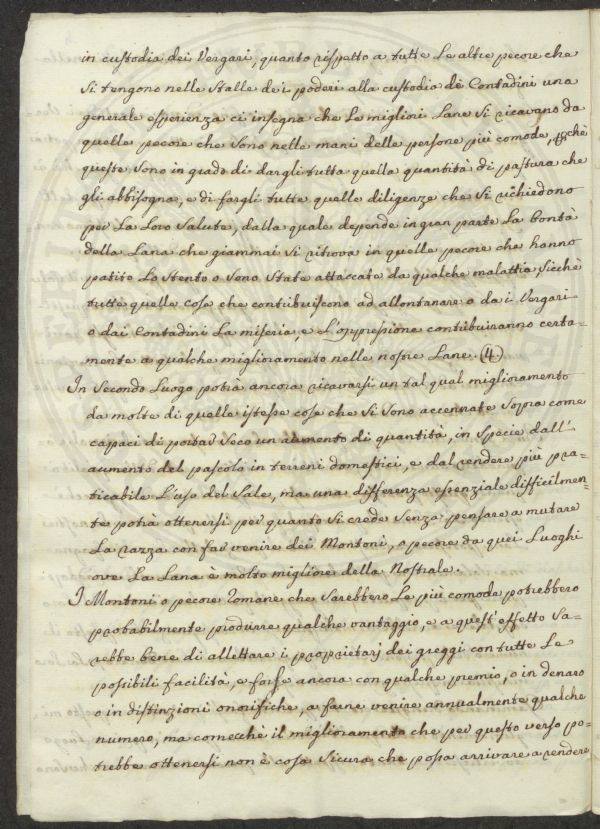 in custodia dei Vergari, quanto rispetto a tutte Le altre pecore che
Si tengono nelle Stalle dei poderi alla custodia de Contadini una
generale esperienza ci insegna che Le migliori Lane Si ricavano da
quelle pecore che Sono nelle mani delle persone più comode, pchè
queste Sono in grado di dargli tutta quella quantità di pastura che
gli abbisogna, e di fargli tutte quelle diligenze che Si richiedono
per La Loro Salute, dalla quale depende in gran parte La bontà
della Lana che giammai Si ritrova in quelle pecore che hanno
patito Lo Stento o Sono State attaccate da qualche malattia. Sicchè
tutte quelle cose che contribuiscono ad allontanare o da i Vergari
o dai Contadini La miseria, e L'oppressione contribuiranno certa=
mente a qualche miglioramento nelle nostre Lane. (4.)
In Secondo Luogo potrà ancora ricavarsi un tal qual miglioramento
da molte di quelle istesse cose che Si Sono accennate Sopra come
capaci di portar Seco un aumento di quantità, in Specie dall'
aumento del pascolo in terreni domestici, e dal rendere più pra=
ticabile L'uso del Sale, ma una differenza essenziale difficilmen=
te potrà ottenersi per quanto Si crede Senza pensare a mutare
La razza con far venire dei Montoni, o pecore da quei Luoghi
ove La Lana è molto migliore della Nostrale.
I Montoni o pecore Romane che Sarebbero Le più comode potrebbero
probabilmente produrre qualche vantaggio, e a quest'effetto Sa=
rebbe bene di allettare i proprietarj dei greggi con tutte Le
possibili facilità, e forse ancora con qualche premio, o in denaro
o in distinzioni onorifiche, a farne venire annualmente qualche
numero, ma comecchè il miglioramento che per questo verso po=
trebbe ottenersi non è cosa Sicura che possa arrivare a rendere